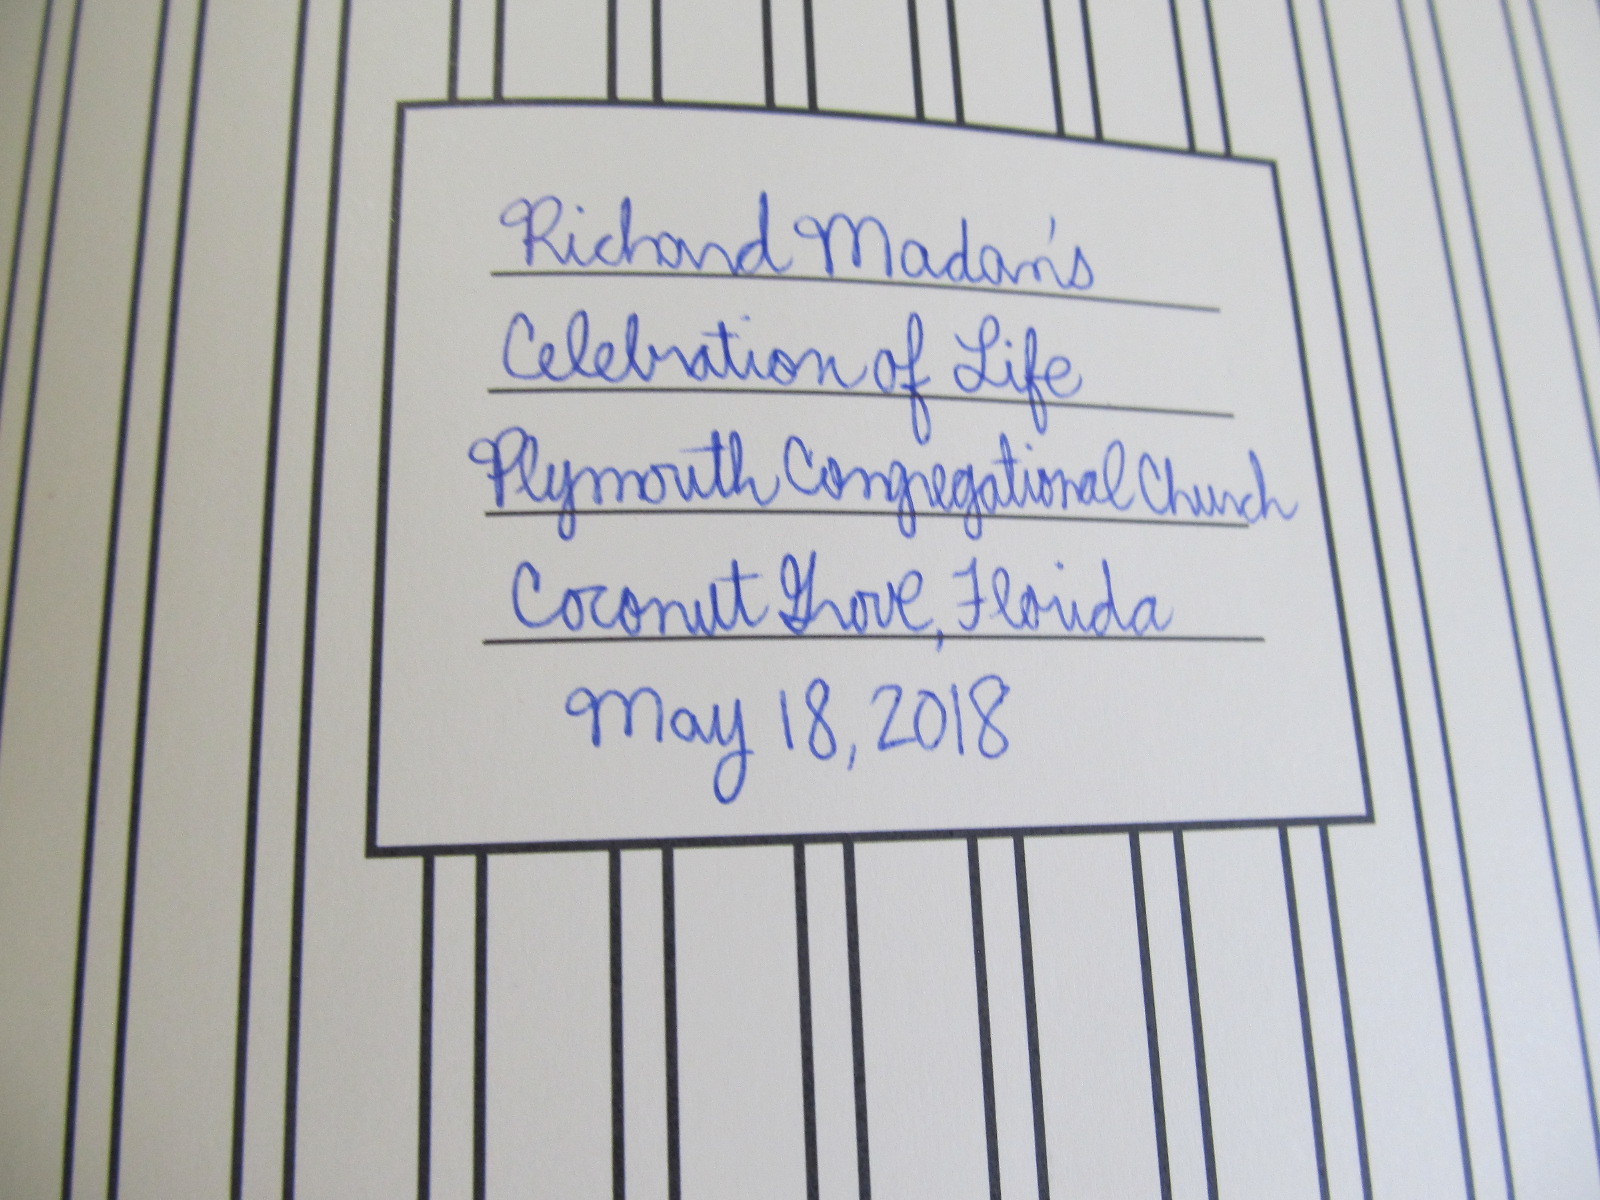 Richard Madan's
Celebration of Life
Plymouth Congregational Church
Coconut Grove, Florida
May 18, 2018